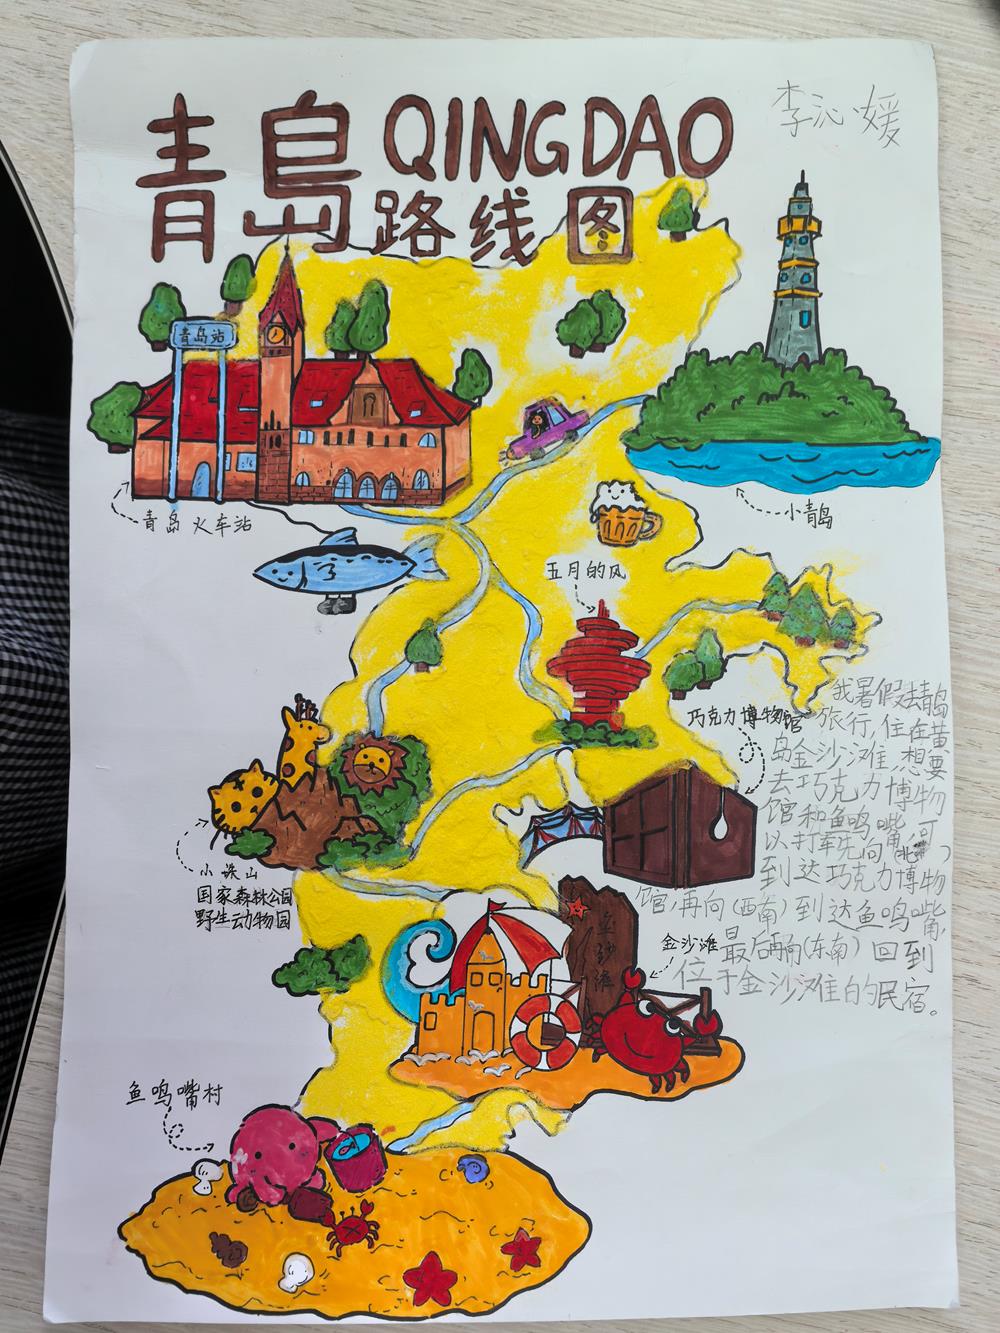 青岛 QINGDAO
路线图
李沁媛
青岛站
青岛火车站
小青岛
五月的风
巧克力博物馆
小珠山
国家森林公园
野生动物园
金沙滩
金沙滩
鱼鸣嘴村
我暑假去青岛
旅行,住在黄
岛金沙滩,想要
去巧克力博物
馆和鱼鸣嘴,可
以打车先向(北)
到达巧克力博物
馆,再向(西南)到达鱼鸣嘴,
最后向(东南)回到
位于金沙滩的民宿。